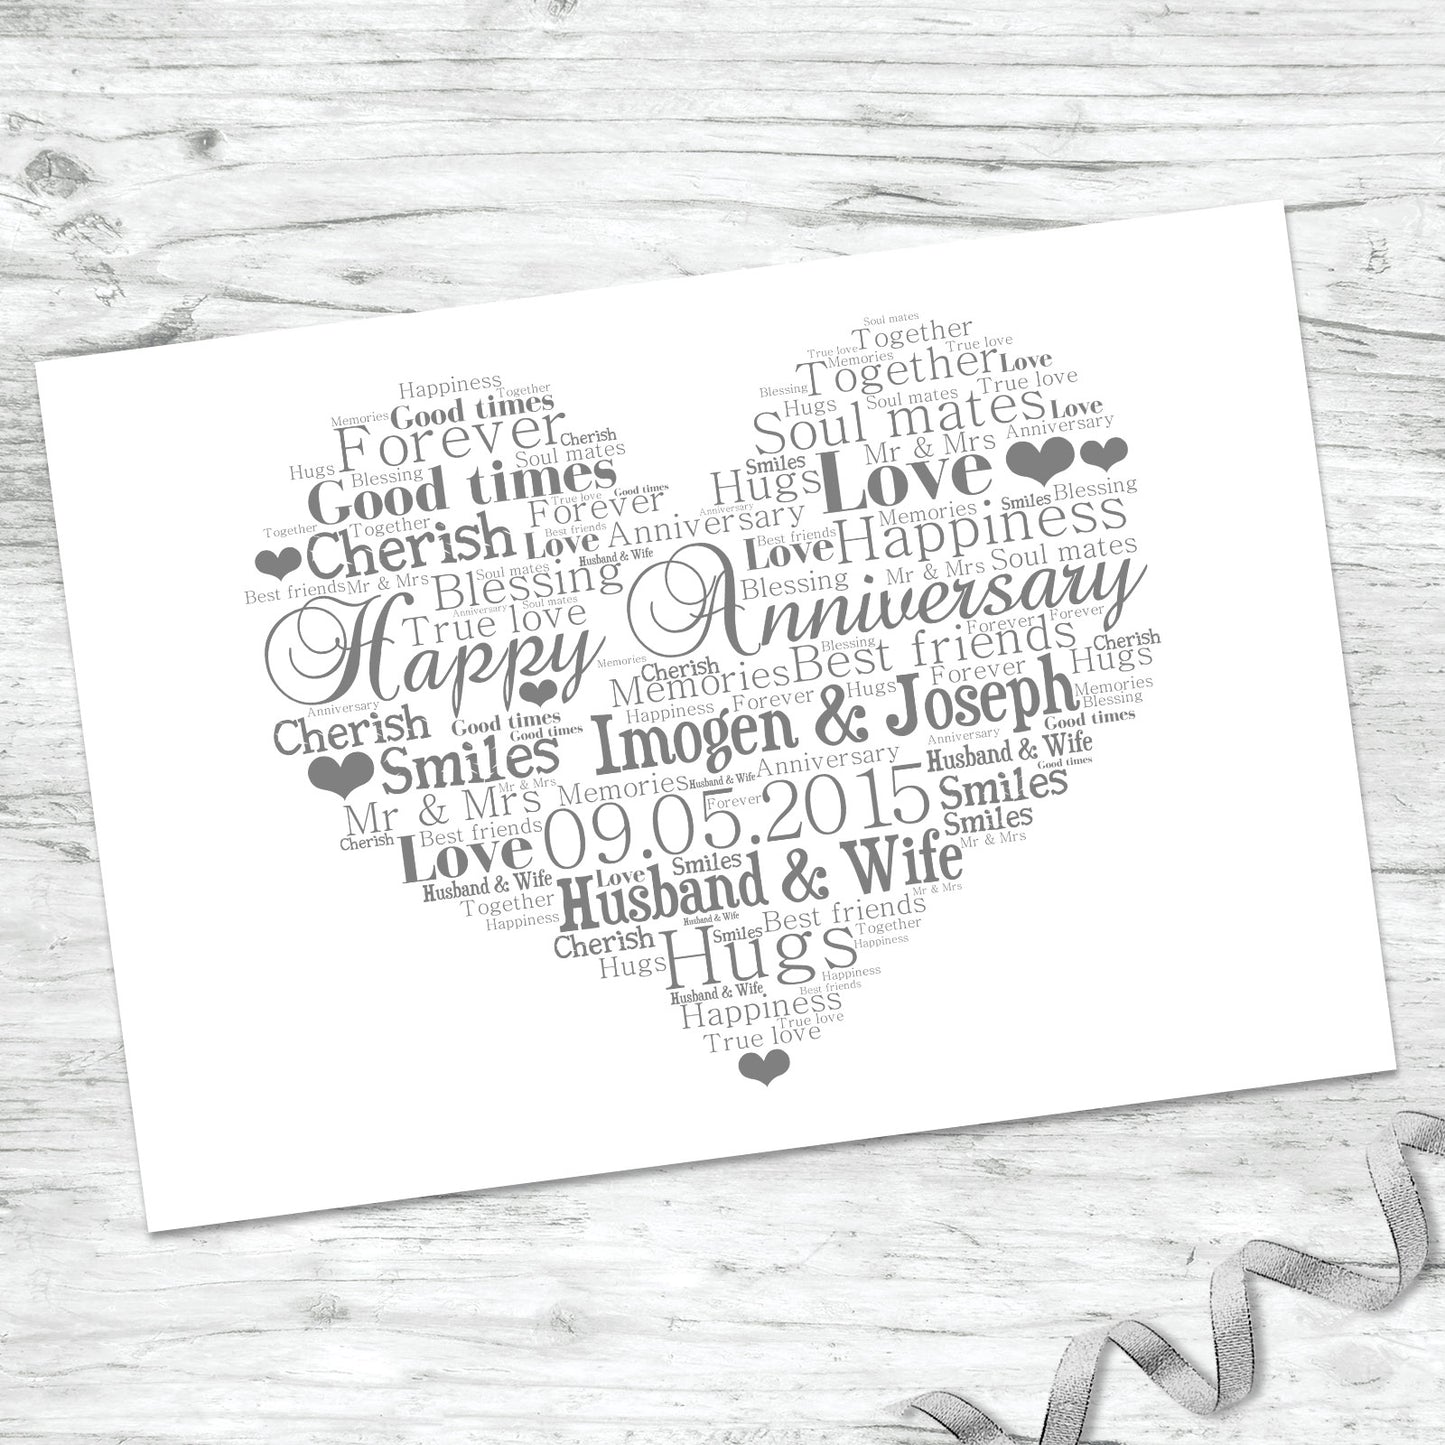 Soul mates
Together
True love
True love
Memories
Together
Love
Happiness
Together
Blessing
Hugs
Soul mates
True love
Memories
Good times
Soul mates
Love
Forever
Cherish
Mr & Mrs
Anniversary
Hugs
Blessing
Soul mates
Smiles
Love
Good times
Hugs
True love
Good times
Forever
Anniversary
Smiles
Blessing
Memories
Together
Together
Cherish
Best friends
Love
Anniversary
Best friends
Happiness
Husband & Wife
Love
Best friends
Mr & Mrs
Soul mates
Blessing
Blessing
Mr & Mrs
Soul mates
Happy
True love
Anniversary
Soul mates
Anniversary
Forever
Forever
Blessing
Best friends
Cherish
Memories
Cherish
Memories
Forever
Hugs
Anniversary
Happiness
Forever
Hugs
Memories
Blessing
Cherish
Good times
Good times
Imogen & Joseph
Good times
Smiles
Anniversary
Husband & Wife
Good times
Mr & Mrs
Memories
Husband & Wife
Anniversary
Smiles
Mr & Mrs
Forever
09.05.2015
Smiles
Cherish
Best friends
Love
Smiles
Mr & Mrs
Husband & Wife
Love
Husband & Wife
Mr & Mrs
Together
Happiness
Husband & Wife
Best friends
Cherish
Smiles
Together
Hugs
Hugs
Happiness
Happiness
Husband & Wife
Best friends
Happiness
True love
True love